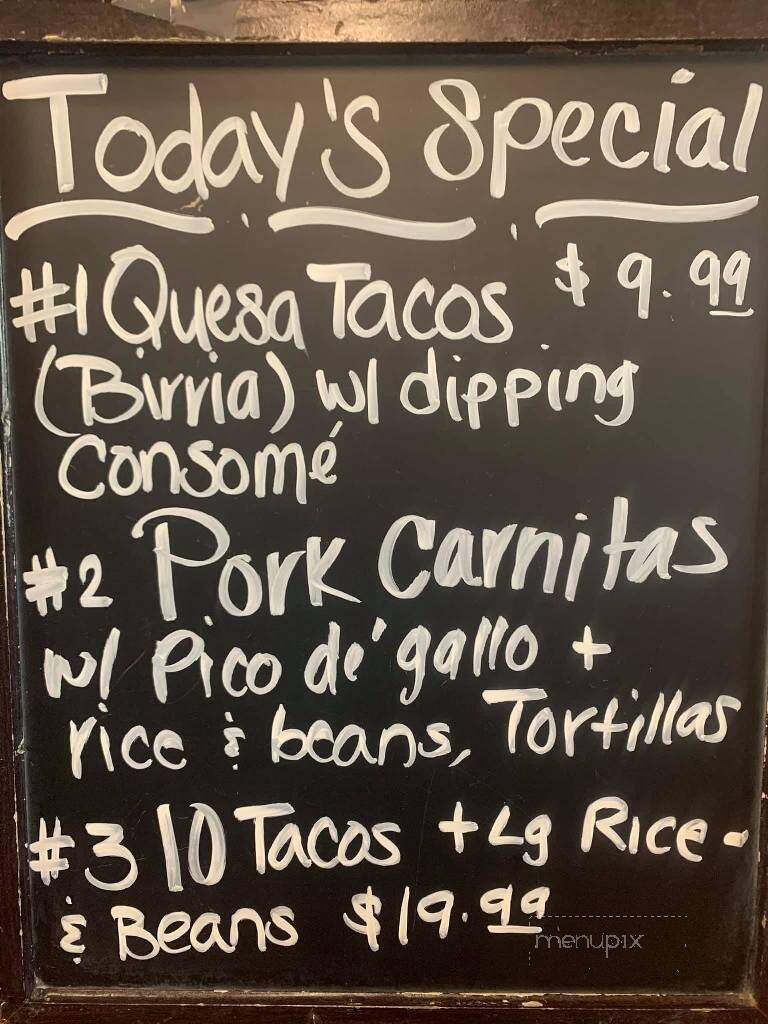 Today's Special
#1 Quesa Tacos $9.99
(Birria) w/ dipping
Consomé
#2 Pork Carnitas
w/ Pico dé gallo +
rice & beans, Tortillas
#3 10 Tacos + Lg Rice -
& Beans $19.99
menupix